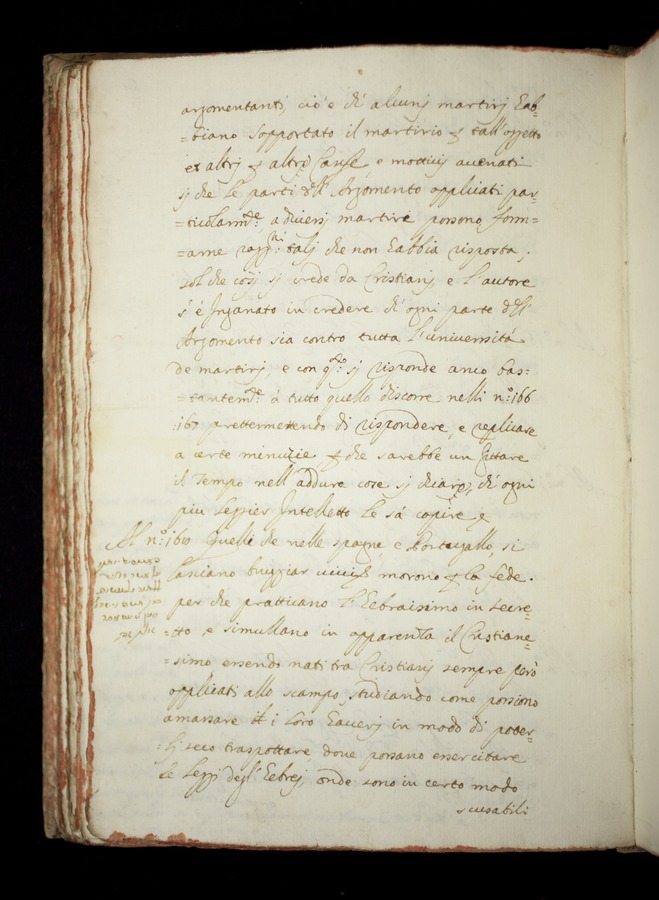 argomentanti, cio è di alcunj martirj Eab=
=biano sopportato il martirio p tall'oggetto
et altrj p altre Cause e mottivj avenati
sj che le parti dell' Argomento applicati par=
=ticolarm.te a diversj martiri possono form=
=arne rapp.ni talj che non Eabbia risposta,
sol che cosj sj crede da Cristianj, e l'autore
s'è Inganato in credere di ogni parte dell'
Argomento sia contro tutta l'università
de martirj, e con q.to sj risponde anco bas=
=tantem.te à tutto quello discorre nelli n.o: 166
:167 prettermettendo di rispondere, e replicare
a certe minuzie p che sarebbe un gittare
il Tempo nell'addure cose sj chiare, di ogni
piu leggier Intelletto le sà capire e
Al n.o: 168 Quelli che nelle spagne, e Portugallo, si
lasciano bruggiar morono p la fede.
per che pratticano l'Eebraisimo in secre=
=tto, e simullano in apparenza il Cristiane=
=simo essendo nati tra Cristianj sempre però
applicati allo scampo, studiando come possono
amassare i loro Eaverj in modo di poter=
=lj seco trasportare dove possano essercitare
le Leggi degl'Eebrej, onde sono in certo modo
scusabili